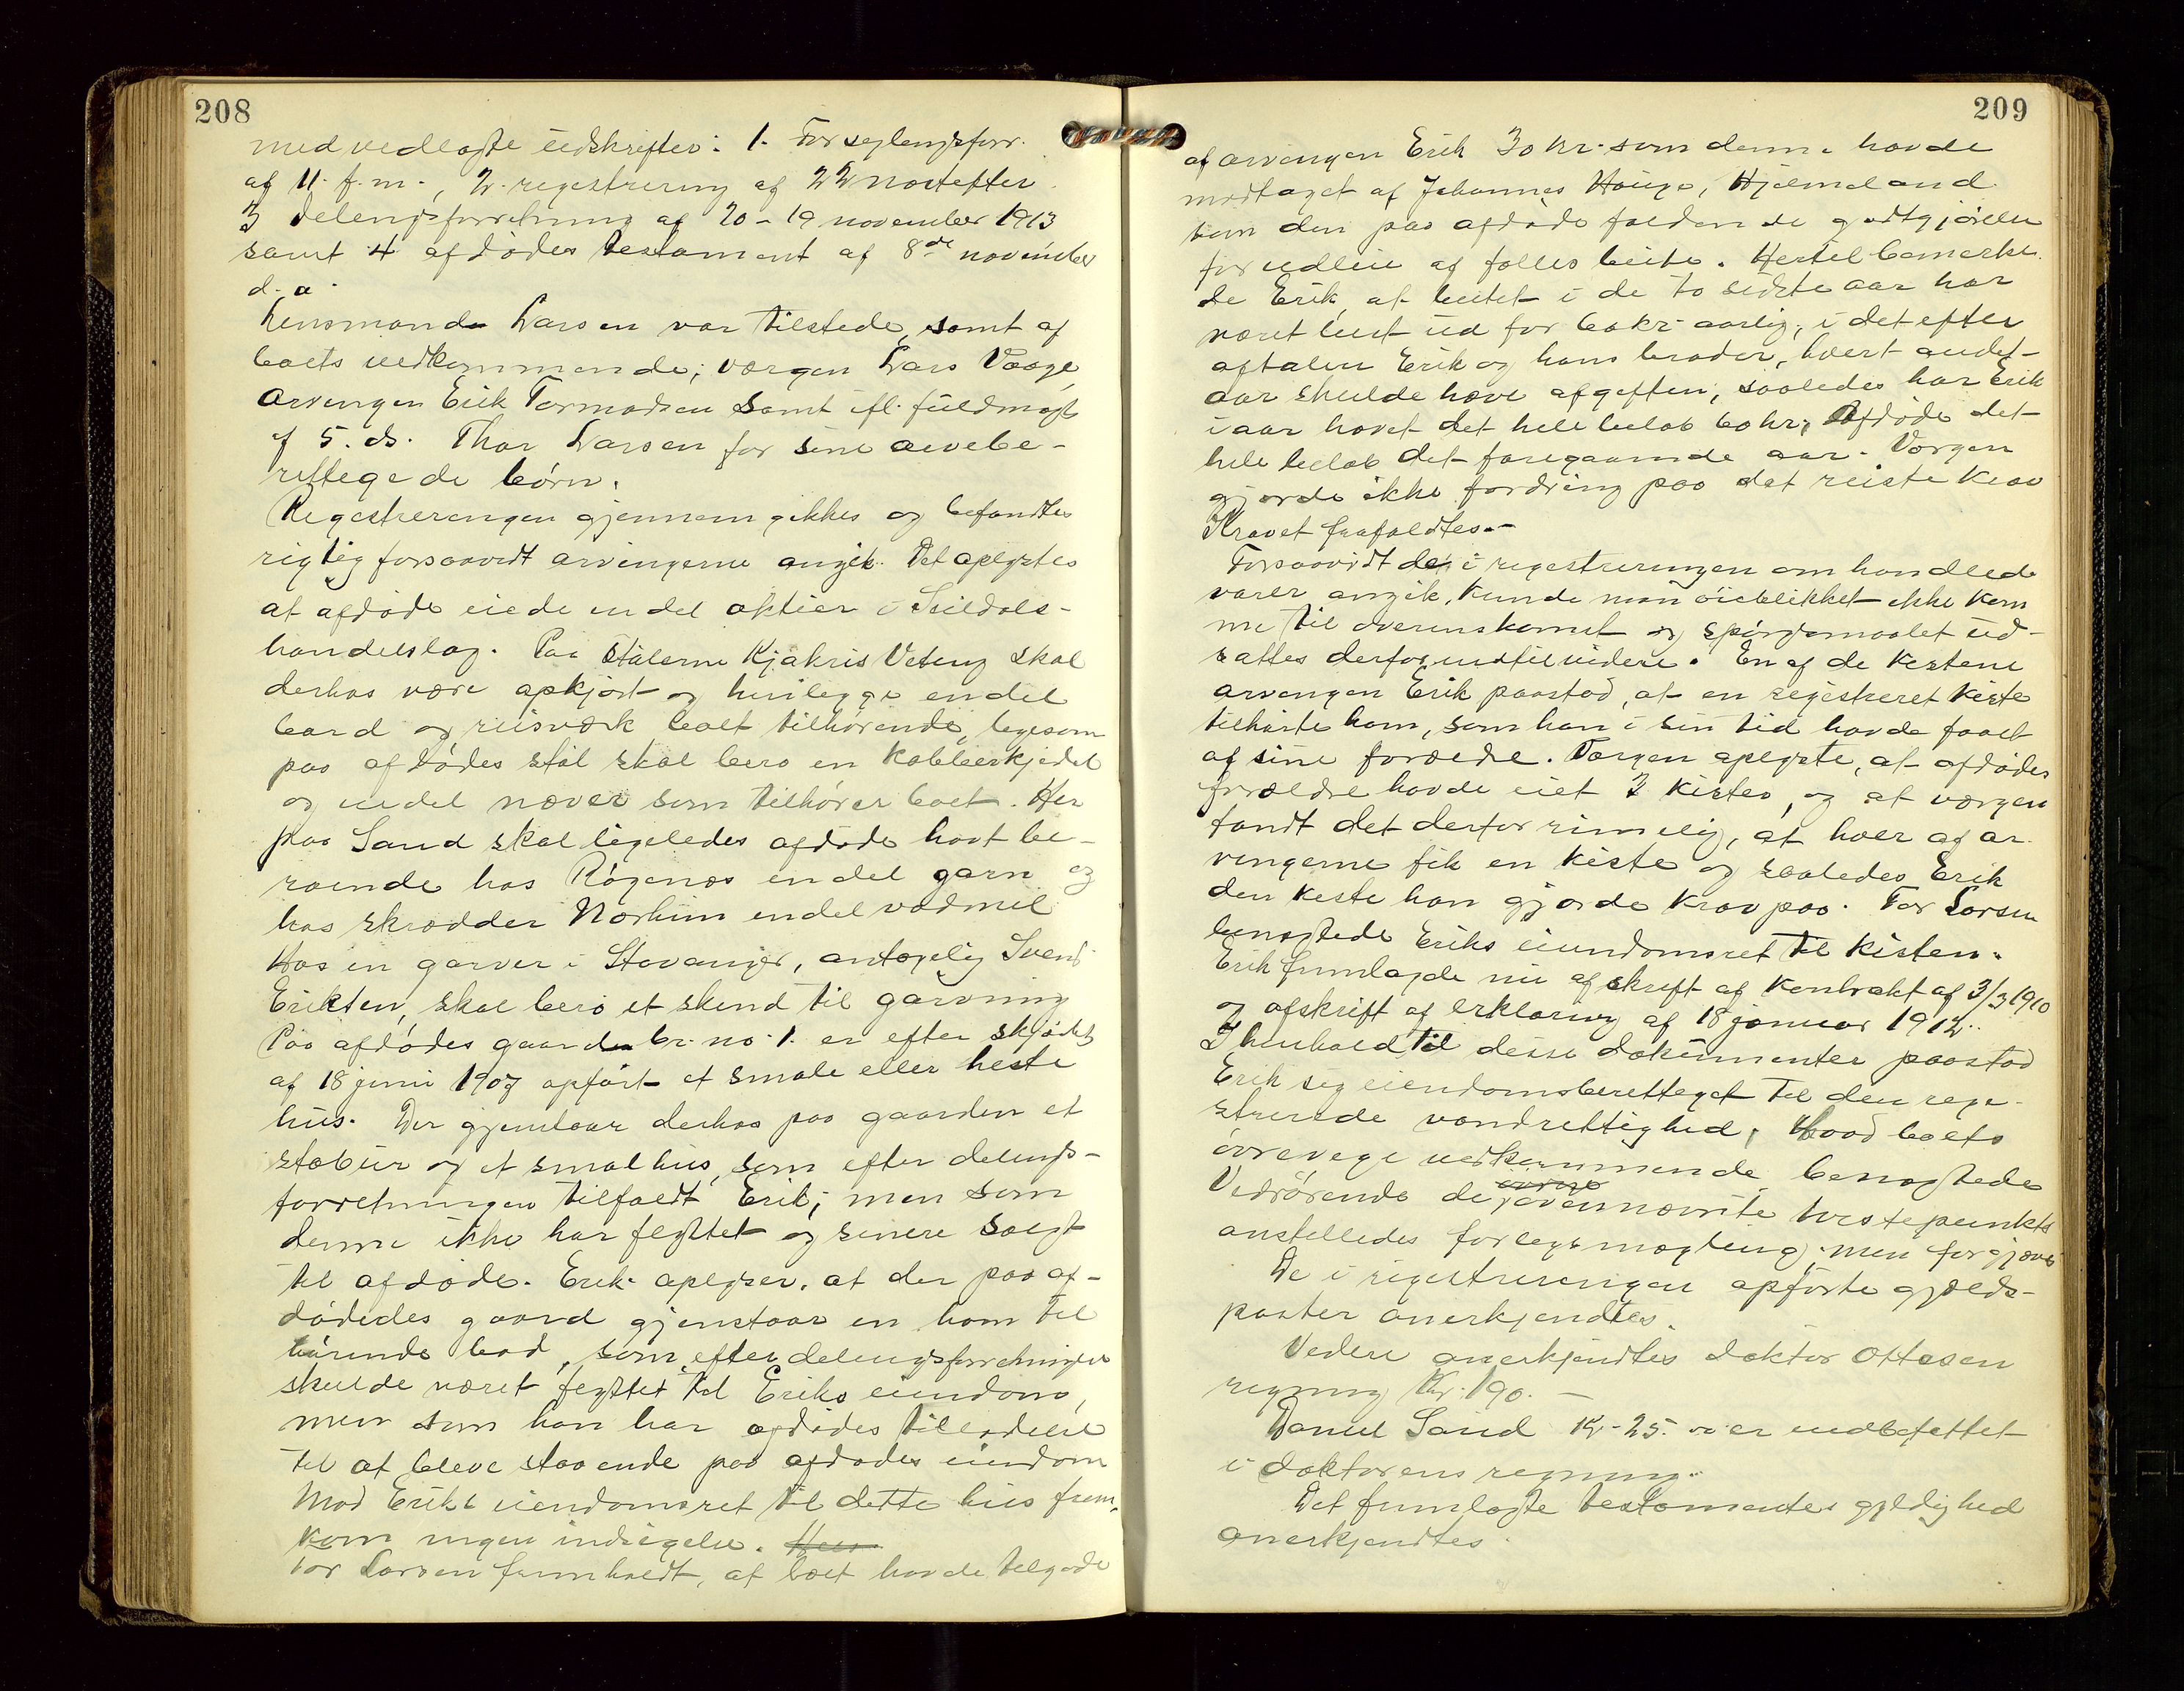 208
med vedlagte udskrifter: 1. Forseglingsforr.
af 11. f.m., 2. registrering af 22 næstefter
3 delingsforretning af 20 - 19 november 1913
samt 4 afdødes testament af 8de november
d. a.
Lensmand Larsen var tilstede, samt af
boets vedkommende; værgen Lars Vaage,
arvingen Erik Tormodsen samt ifl. fuldmagt
af 5. ds. Thor Larsen for sine arvebe-
rettigede børn.
Registreringen gjennemgikkes og befandtes
rigtig forsaavidt arvingerne angik. Det oplystes
at afdøde eiede en del aktier i Suldals-
handelslag. Paa stølerne Kjakris Veteng skal
derhos være opkjørt og henligge endel
bord og reisværk boet tilhørende, ligesom
paa afdødes støl skal bero en kobberkjedel
og endel næver som tilhører boet. Her
paa Sand skal ligeledes afdøde havt be-
roende hos Røgenæs endel garn og
hos skrædder Norheim endel vadmel
Hos en garver i Stavanger, antagelig Svend
Eriksen, skal bero et skind til garvning
Paa afdødes gaard br. no. 1. er efter skjødet
af 18 juni 1907 opført et smale eller heste
hus. Der gjenstaar derhos paa gaarden et
stabur og et smalhus, som efter delings-
forretningen tilfaldt Erik; men som
denne ikke har flyttet og senere solgt
til afdøde. Erik oplyser, at der paa af-
dødedes gaard gjenstaar en ham til
hørende bod, som efter delingsforretningen
skulde været flyttet til Eriks eiendom,
men som han har afdødes tilladelse
til at blive staaende paa afdødes eiendom
Mod Eriks eiendomsret til dette hus frem-
kom ingen indsigelse. Hees
Tor Larsen fremholdt, at boet havde tilgode
209
af arvingen Erik 30 kr. som denne havde
modtaget af Johannes Hauge, Hjelmeland
som den paa afdøde faldende godtgjørelse
for udleie af fælles beite. Hertil bemerke
de Erik, at beitet i de to sidste aar har
været leiet ud for 60 kr. aarlig, idet efter
aftalen Erik og hans broder, hvert andet
aar skulde have afgiften, saaledes har Erik
i aar hævet det hele beløb 60 kr., Afdøde det
hele beløb det foregaaende aar. Værgen
gjorde ikke fordring paa det reiste krav
Kravet frafaldtes.-
Forsaavidt de i registreringen omhandlede
varer angik, kunde man øieblikket ikke kom
me til overenskomst og spørgsmaalet ud-
sattes derfor indtil videre. En af de kistene
arvingen Erik paastod, at en registreret kiste
tilhørte ham, som han i sin tid havde faaet
af sine forældre. Værgen oplyste, at afdødes
forældre havde eiet 2 kister, og at værgen
fandt det derfor rimelig, at hver af ar-
vingerne fik en kiste og saaledes Erik
den kiste han gjorde krav paa. Tor Larsen
benægtede Eriks eiendomsret til kisten.
Erik fremlagde nu afskrift af kontrakt af 3/3 1910
og afskrift af erklæring af 18 januar 1912..
I henhold til disse dokumenter paastod
Erik sig eiendomsberettiget til den regi-
strerede vandrettighed, Hvad boets
øvrevege vedkommende benægtede
Vedrørende de øvrige ovennævnte tvistepunkte
anstilledes forligsmægling, men forgjæves
De i registreringen opførte gjælds-
poster anerkjendtes.
Videre anerkjendtes doktor Ottesen
regning Kr. 190. -
Daniel Sand Kr. 25. - er indbefattet
i doktorens regning.
Det fremlagte testamentes gyldighed
anerkjendtes.